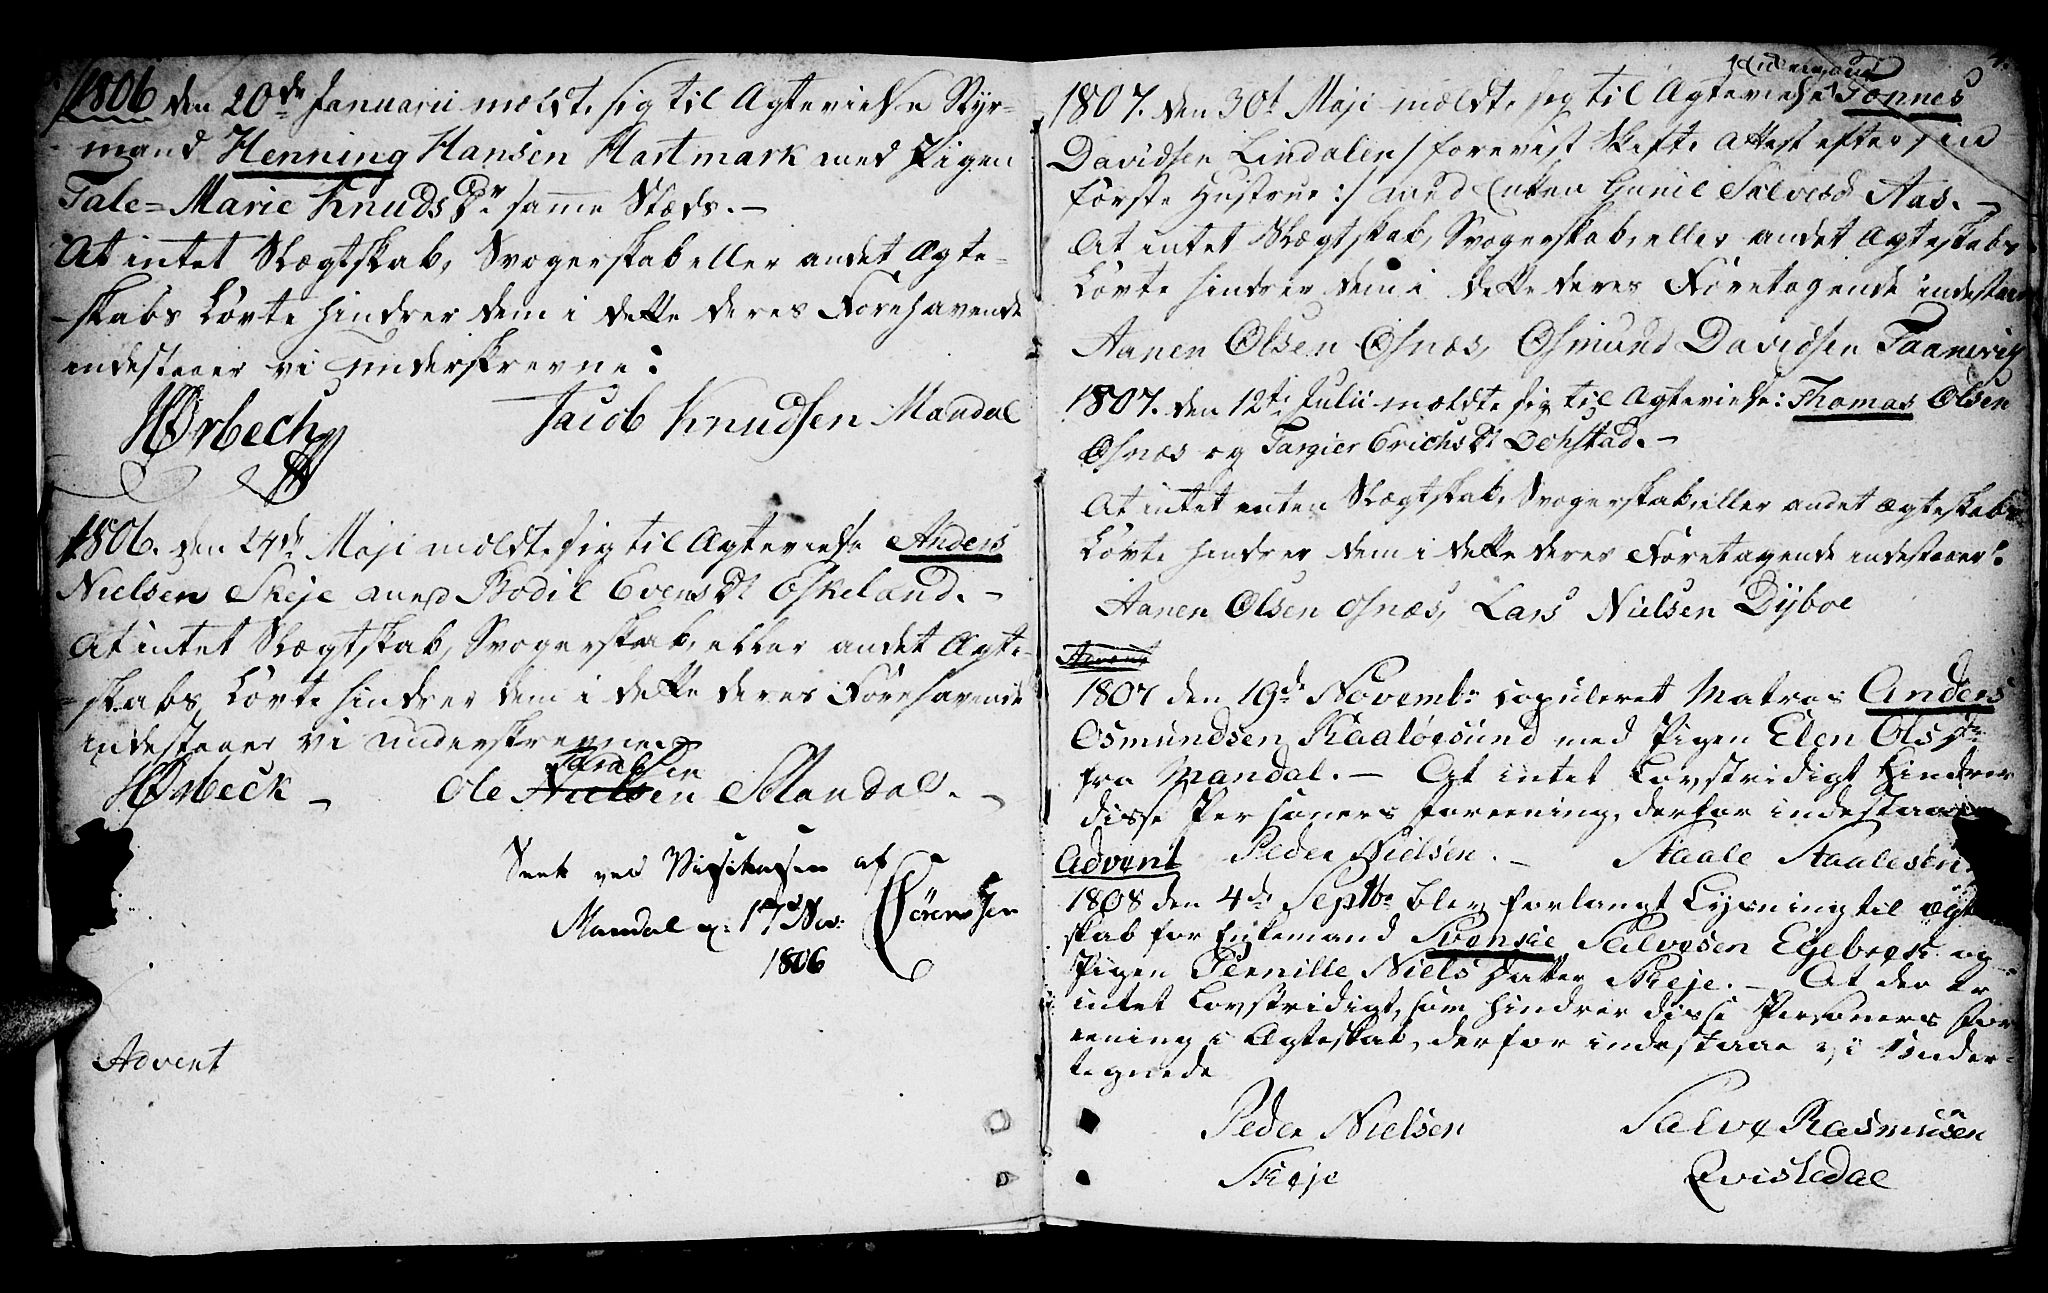 1806 den 20de Januarii meldte sig til Ægtevielse Styr-
mand Henning Hansen Hartmark med Pigen
Tale=Marie Knuds Dr samme Stæds. -
At intet Slægtskab, Svogerskab eller andet Ægte-
-skabs Lovte hindrer dem i dette deres Forehavende
indestaaer vi underskrevne:
HØrbech Jacob Knudsen Mandal
1806. den 24de Maji meldte sig til Ægtevielse Anders
Nielsen Skeje med Bodil Evens Dt Eskeland. -
At intet Slægtskab, Svogerskab, eller andet Ægte-
-skabs Lovte hindrer dem i dette deres Forehavende
indestaaer vi underskrevne
HØrbeck - Ole Nielsen Mandal. -
Seet ved Visitasen af
Mandal d: 17 Nov: Sørensen
1806
Advent
Enkemand
1807. den 30t Maji meldte sig til Ægtevielse Tønnes
Davidsen Lindalen /forevist Skifte Attest efter sin
første Hustrue:/ med Enken Gunil Salves D Aas. -
At intet Slægtskab, Svogerskab, eller andet Ægteskabs
Lovte hindrer dem i dette deres Foretagende indestaaer
Aanen Olsen Osnæs, Osmund Davidsen Taanevig
1807. den 12te Julii meldte sig til Ægtevielse: Thomas Olsen
Osnæs og Targier Erichs Dt Dchstad. -
At intet enten Slægtskab, Svogerskab, eller andet Ægteskabs
Lovte hindrer dem i dette deres Foretagende indestaaer:
Aanen Olsen Osnæs, Lars Nielsen Dyboe
Advent
1807 den 19de Novembr copuleret Matros Anders
Osmundsen Kaaløesund med Pigen Elen Ols Dtr
fra Mandal. - At intet Lovstridigt hindrer
disse Personers Foreening, derfor indestaae
Advent Peder Nielsen. - Staale Staalesen
1808 den 4de Septbr blev forlangt Lysning til Ægte
skab for Enkemand Svenke Salvesen Egebræk og
Pigen Pernille Niels Datter Skeje. - At der er
intet Lovstridigt, som hindrer disse Personers For
eening i Ægteskab, derfor indestaae vi Under-
tegnede
Peder Nielsen Salve Rasmusen
Skeje Qvisledal